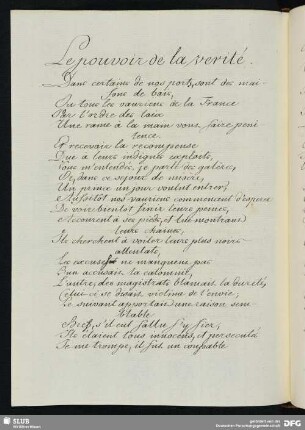 Le pouvoir de la verité.
Dans certains de nos ports, sont des mai-
sons de
Où tous les vauriens de la France
Par l'ordre des loix
Une rame à la main vont faire peni
tence.
Et recevoir la recompense
Due a leurs indignes exploits,
Vous m'entendez, je parle des galères,
Or, dans ce sejour de misère,
Un prince un jour voulut entrer,
Aussitôt nos vauriens commencent d'
De voir bientôt finir leurs peines,
et courent à ses pieds, et lui montrant
leurs chaines,
Ils cherchent à voiler leurs plus noirs
attentats,
Les excuses ne manquent pas
L'un accusait la calomnie,
L'autre, des magistrats blamait la dureté,
Celui-ci se disait victime de l'envie,
Le suivant apportait une raison sem-
blable
Bref, s'il eut fallu s'y fier,
Ils étaient tous innocens, et persecutés
Je me trompe, il fut un coupable
SLUB
DFG